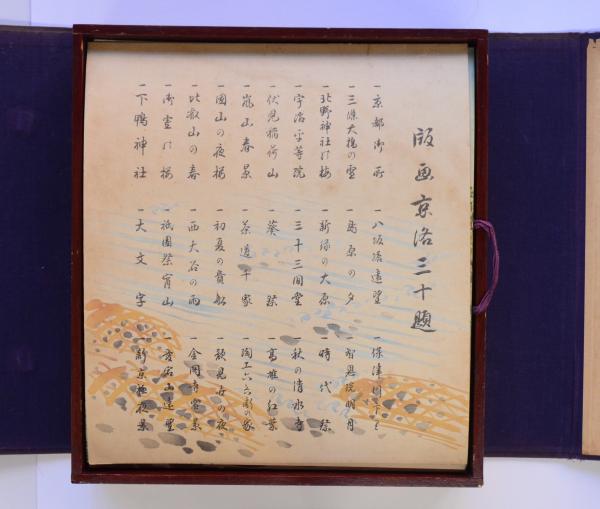 版画京洛三十題
一京都御所
一八坂塔遠望
一保津川下り
一三條大橋の雪
一島原の夕
一智恩院明月
一北野神社の梅
一新緑の大原
一時代祭
一宇治平等院
一三十三間堂
一秋の清水寺
一伏見稲荷山
一葵祭
一高雄の紅葉
一嵐山春景
一茶道千家
一陶工六六彩の家
一圓山の夜桜
一初夏の貴船
一顔見古の夜
一比叡山の春
一西大谷の雨
一金閣寺雪景
一御室の桜
一祇園祭宵山
一愛宕山遠望
一下鴨神社
一大文字
一新京極夜景